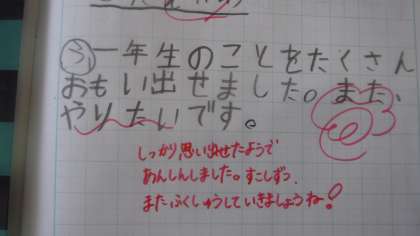 ふ一年生のことをたくさん
おもい出せました。また、
やりたいです。
しっかり思い出せたようで
あんしんしました。すこしずつ、
またふくしゅうしていきましょうね!